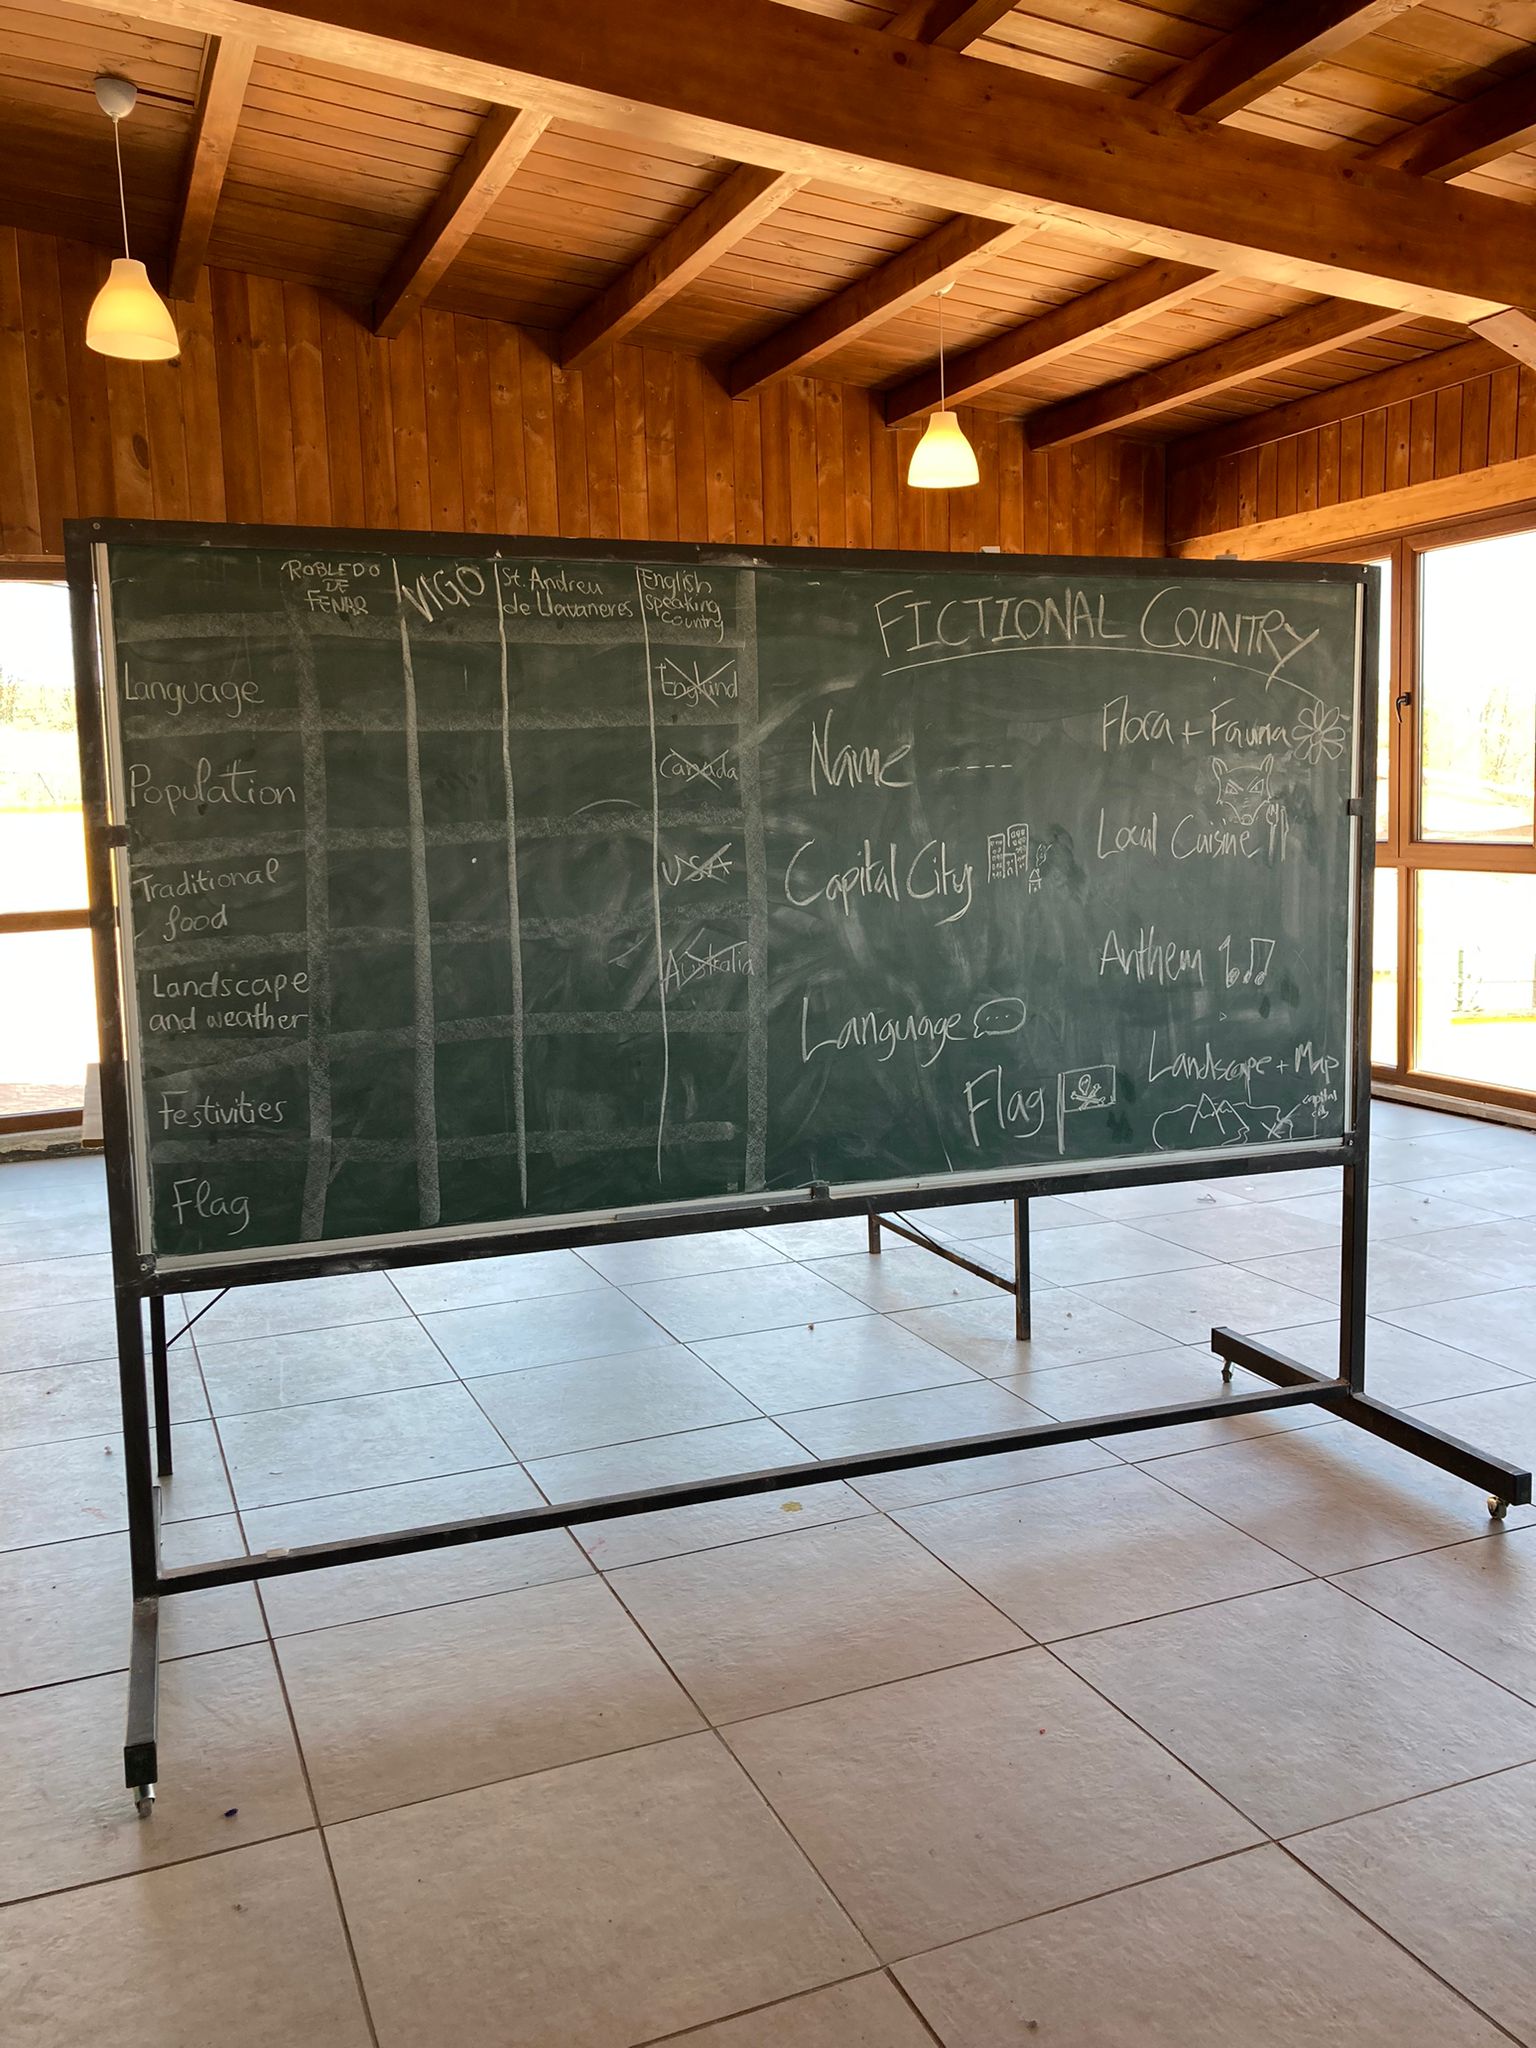 ROBLEDO
DE
FENAR
VIGO
St. Andreu
de Llavaneres
English
speaking
country
Language
England
Population
Canada
Traditional
food
USA
Landscape
and weather
Australia
Festivities
Flag
FICTIONAL COUNTRY
Name
Capital City
Language
Flag
Flora + Fauna
Local Cuisine
Anthem
Landscape + Map
capital
city